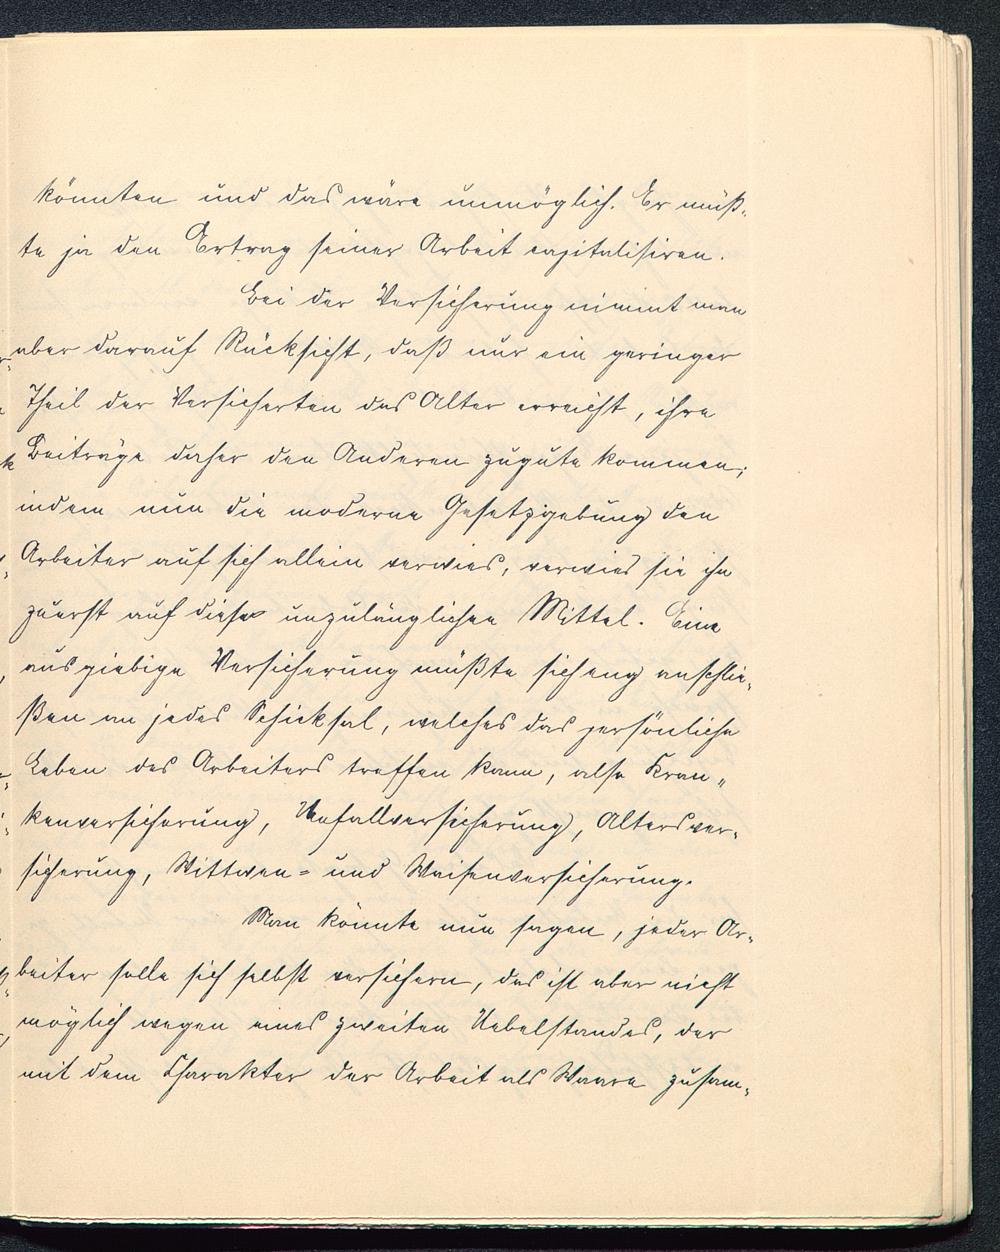 könnten und das wäre unmöglich. Er müß-
te ja den Ertrag seiner Arbeit capitalisiren.
Bei der Versicherung nimmt man
aber darauf Rücksicht, daß nur ein geringer
Theil der Versicherten das Alter erreicht, ihre
Beiträge daher den Anderen zugute kommen;
indem nun die moderne Gesetzgebung den
Arbeiter auf sich allein verwies, verwies sie ihn
zuerst auf diese unzulänglichen Mittel. Eine
ausgiebige Versicherung müßte sich eng anschlie-
ßen an jedes Schicksal, welches das persönliche
Leben des Arbeiters treffen kann, also Kran-
kenversicherung, Unfallversicherung, Altersver-
sicherung, Wittwen- und Waisenversicherung.
Man könnte nun sagen, jeder Ar-
beiter solle sich selbst versichern, das ist aber nicht
möglich wegen eines zweiten Uebelstandes, der
mit dem Charakter der Arbeit als Waare zusam-